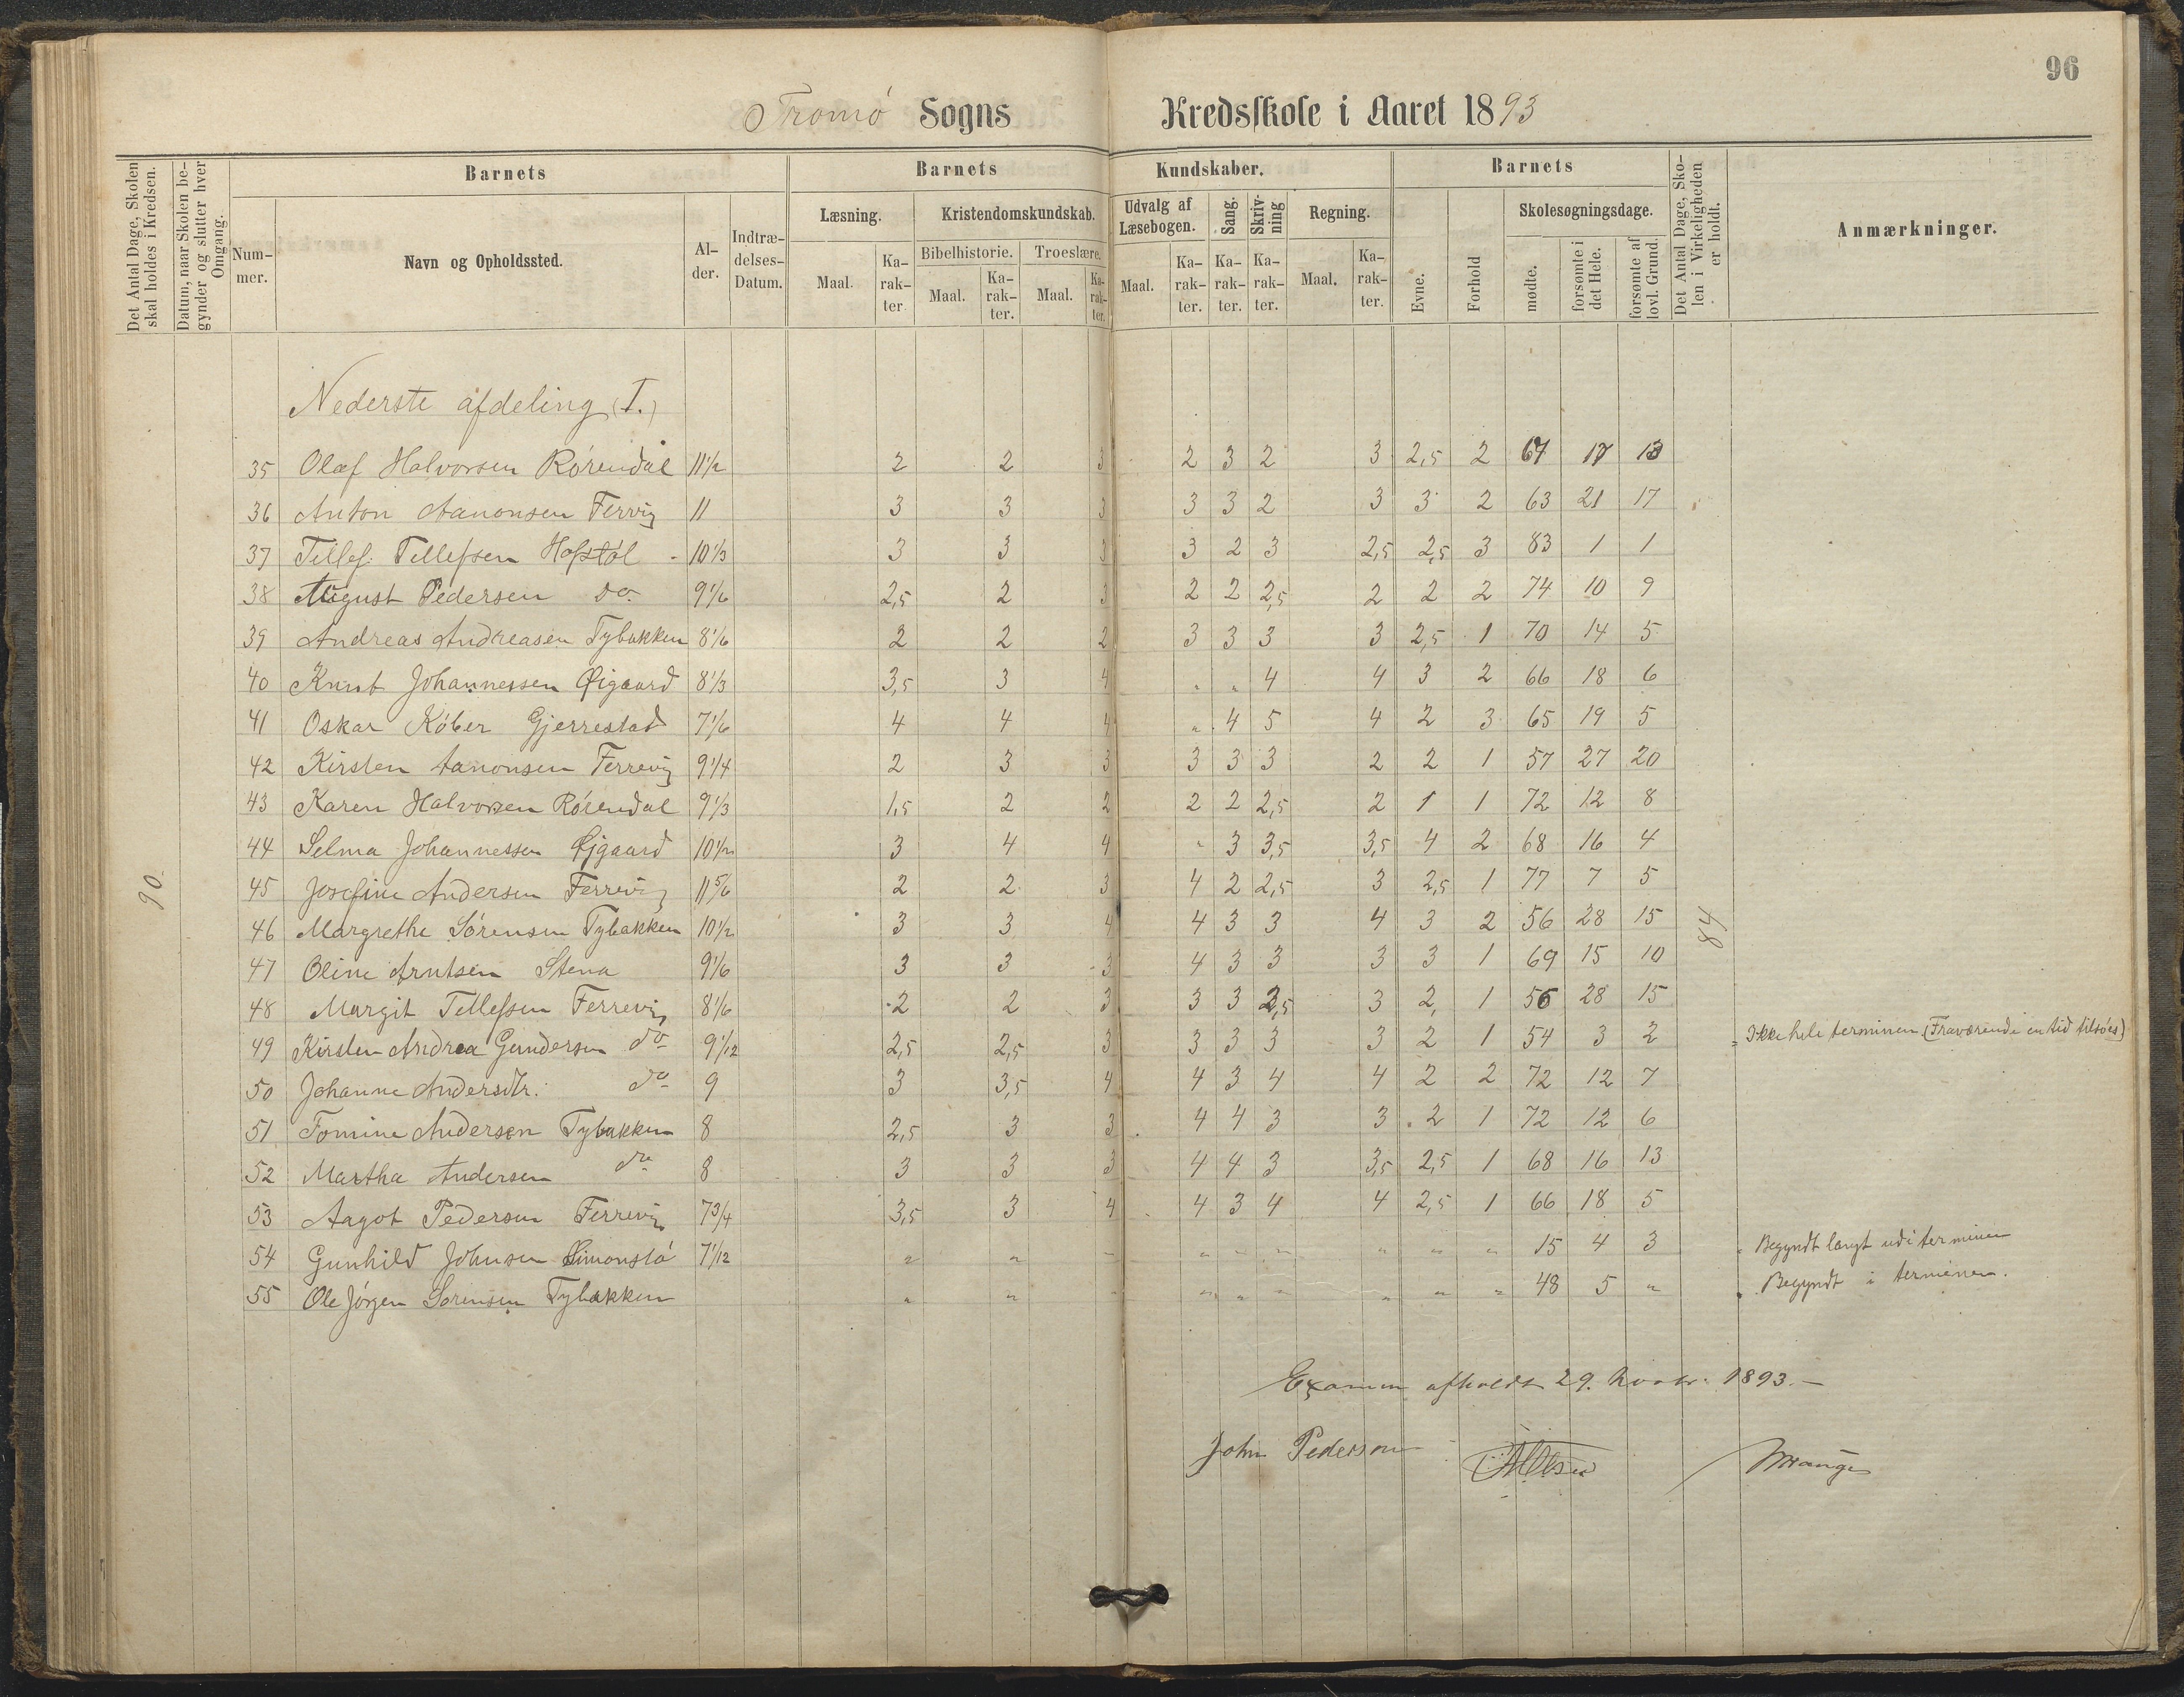 96
Tromø Sogns Kredsskole i Aaret 1893
Det Antal Dage, Skolen skal holdes i Kredsen.
Datum, naar Skolen begynder og slutter hver Omgang.
Barnets
Barnets Kundskaber.
Barnets
Det Antal Dage, Skolen i Virkeligheden er holdt.
Anmærkninger.
Nummer.
Navn og Opholdssted.
Alder.
Indtrædelses-Datum.
Læsning.
Kristendomskundskab.
Udvalg af Læsebogen.
Sang.
Skrivning
Regning.
Evne.
Forhold
Skolesøgningsdage.
Bibelhistorie.
Troeslære.
Maal. Karakter. Maal. Karakter. Maal. Karakter. Maal. Karakter. Karakter. Karakter. Maal. Karakter.
mødte. forsømte i det Hele. forsømte af lovl. Grund.
Nederste afdeling (I.)
35 Olaf Halvorsen Rørendal 11 1/2 2 2 3 2 3 2 3 2,5 2 67 17 13
36 Anton Aanonsen Ferrvig 11 3 3 3 3 3 2 3 3 2 63 21 17
37 Tellef Tellefsen Hofstøl 10 1/3 3 3 3 3 2 3 2,5 2,5 3 83 1 1
38 August Pedersen do. 9 1/6 2,5 2 3 2 2 2,5 2 2 2 74 10 9
39 Andreas Andreasen Tybakken 8 1/6 2 2 2 3 3 3 3 2,5 1 70 14 5
40 Knut Johannessen Øigaard 8 1/3 3,5 3 4 " " 4 4 3 2 66 18 6
41 Oskar Køber Gjerrestad 7 1/6 4 4 4 " 4 5 4 2 3 65 19 5
42 Kirsten Aanonsen Ferrevig 9 1/4 2 3 3 3 3 3 2 2 1 57 27 20
43 Karen Halvorsen Rørendal 9 1/3 1,5 2 2 2 2 2,5 2 1 1 72 12 8
44 Selma Johannessen Øjgaard 10 1/2 3 4 4 " 3 3,5 3,5 4 2 68 16 4
45 Josefine Andersen Ferrevig 11 5/6 2 2 3 4 2 2,5 3 2,5 1 77 7 5
90.
46 Margrethe Sørensen Tybakken 10 1/2 3 3 4 4 3 3 4 3 2 56 28 15
84
47 Oline Arntsen Stena 9 1/6 3 3 3 4 3 3 3 3 1 69 15 10
48 Margit Tellefsen Ferrevig 8 1/6 2 2 3 3 3 2,5 3 2, 1 56 28 15
49 Kirsten Andrea Gundersen do 9 1/12 2,5 2,5 3 3 3 3 3 2 1 54 3 2 Ikke hele terminen (Fraværende en tid tilsøes)
50 Johanne Andersdtr. do 9 3 3,5 4 4 3 4 4 2 2 72 12 7
51 Tomine Andersen Tybakken 8 2,5 3 3 4 4 3 3 2 1 72 12 6
52 Martha Andersen do 8 3 3 3 4 4 3 3,5 2,5 1 68 16 13
53 Aagot Pedersen Ferrevig 7 3/4 3,5 3 4 4 3 4 4 2,5 1 66 18 5
54 Gunhild Johnsen Simonstø 7 1/12 " " " " " " " " " 15 4 3 Begyndt langt ud i terminen
55 Ole Jørgen Sørensen Tybakken " " " " " " " " " 48 5 " Begyndt i terminen.
Examen afholdt 29. Novbr. 1893.
John Pedersen